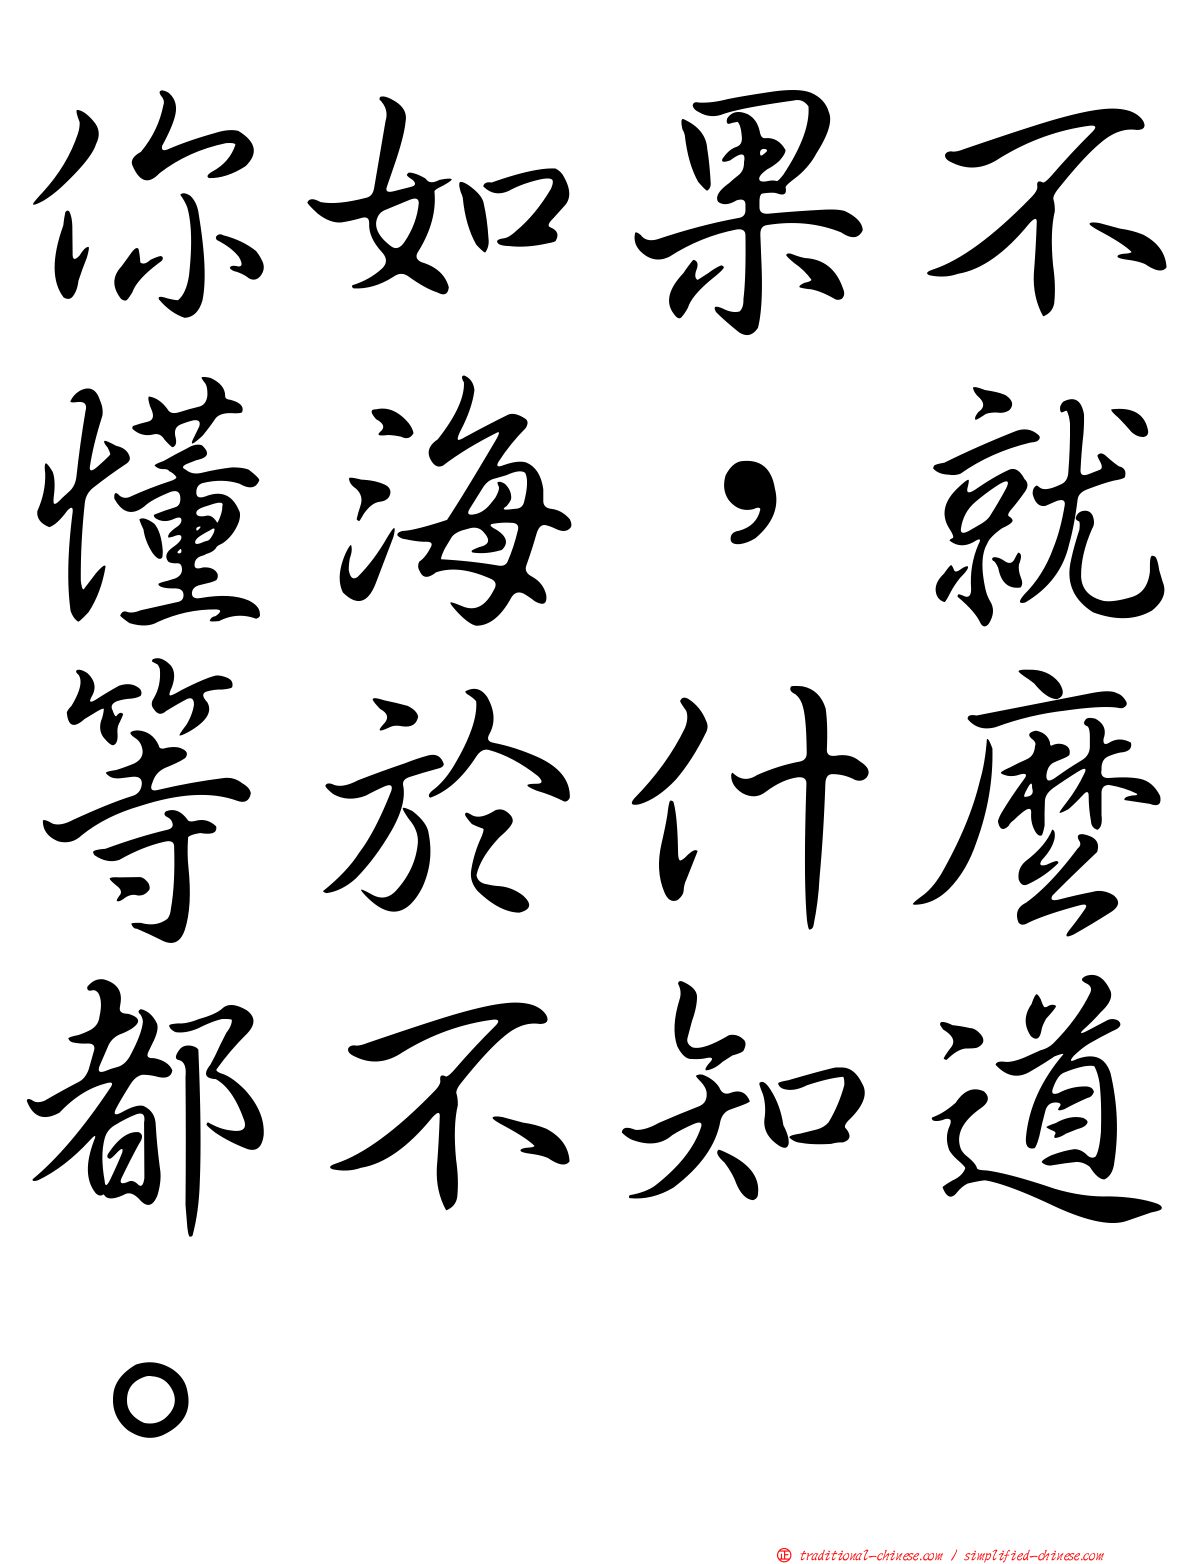 你如果不
懂海，就
等於什麼
都不知道
。
㊣ traditional-chinese.com / simplified-chinese.com